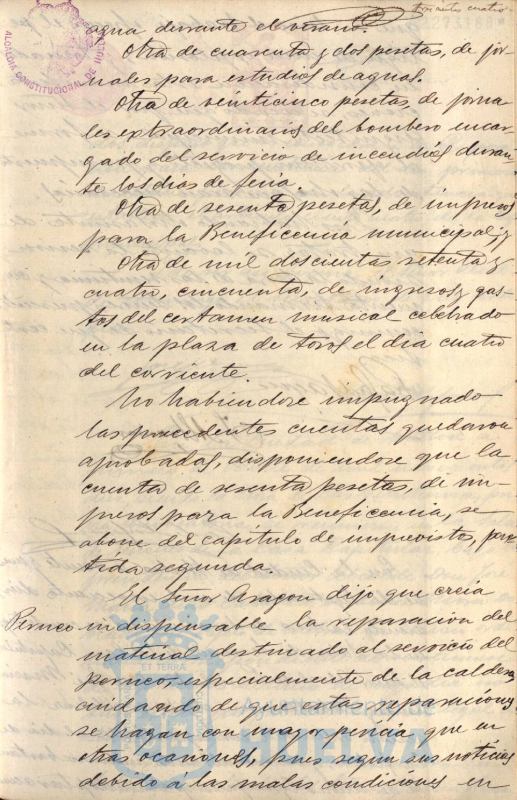 agua durante el verano.
Otra de cuarenta y dos pesetas, de jor-
nales para estudios de aguas.
Otra de veinticinco pesetas, de jorna-
les extraordinarios del bombero encar-
gado del servicio de incendios duran-
te los dias de feria.
Otra de sesenta pesetas, de impresos
para la Beneficencia municipal; y
Otra de mil doscientas setenta y
cuatro, cincuenta, de ingresos y gas-
tos del certamen musical celebrado
en la plaza de toros el dia cuatro
del corriente.
No habiendose impugnado
las precedentes cuentas quedaron
aprobadas, disponiendose que la
cuenta de sesenta pesetas, de im-
presos para la Beneficencia, se
abone del capítulo de imprevistos, par-
tida segunda.
El Señor Aragon dijo que creia
indispensable la reparacion del
material destinado al servicio del
especialmente de la caldera,
cuidando de que estas reparaciones
se hagan con mayor pericia que en
otras ocasiones, pues segun sus noticias
debido á las malas condiciones en
ALCALDIA CONSTITUCIONAL DE HUELVA
Ayuntamiento de
HUELVA